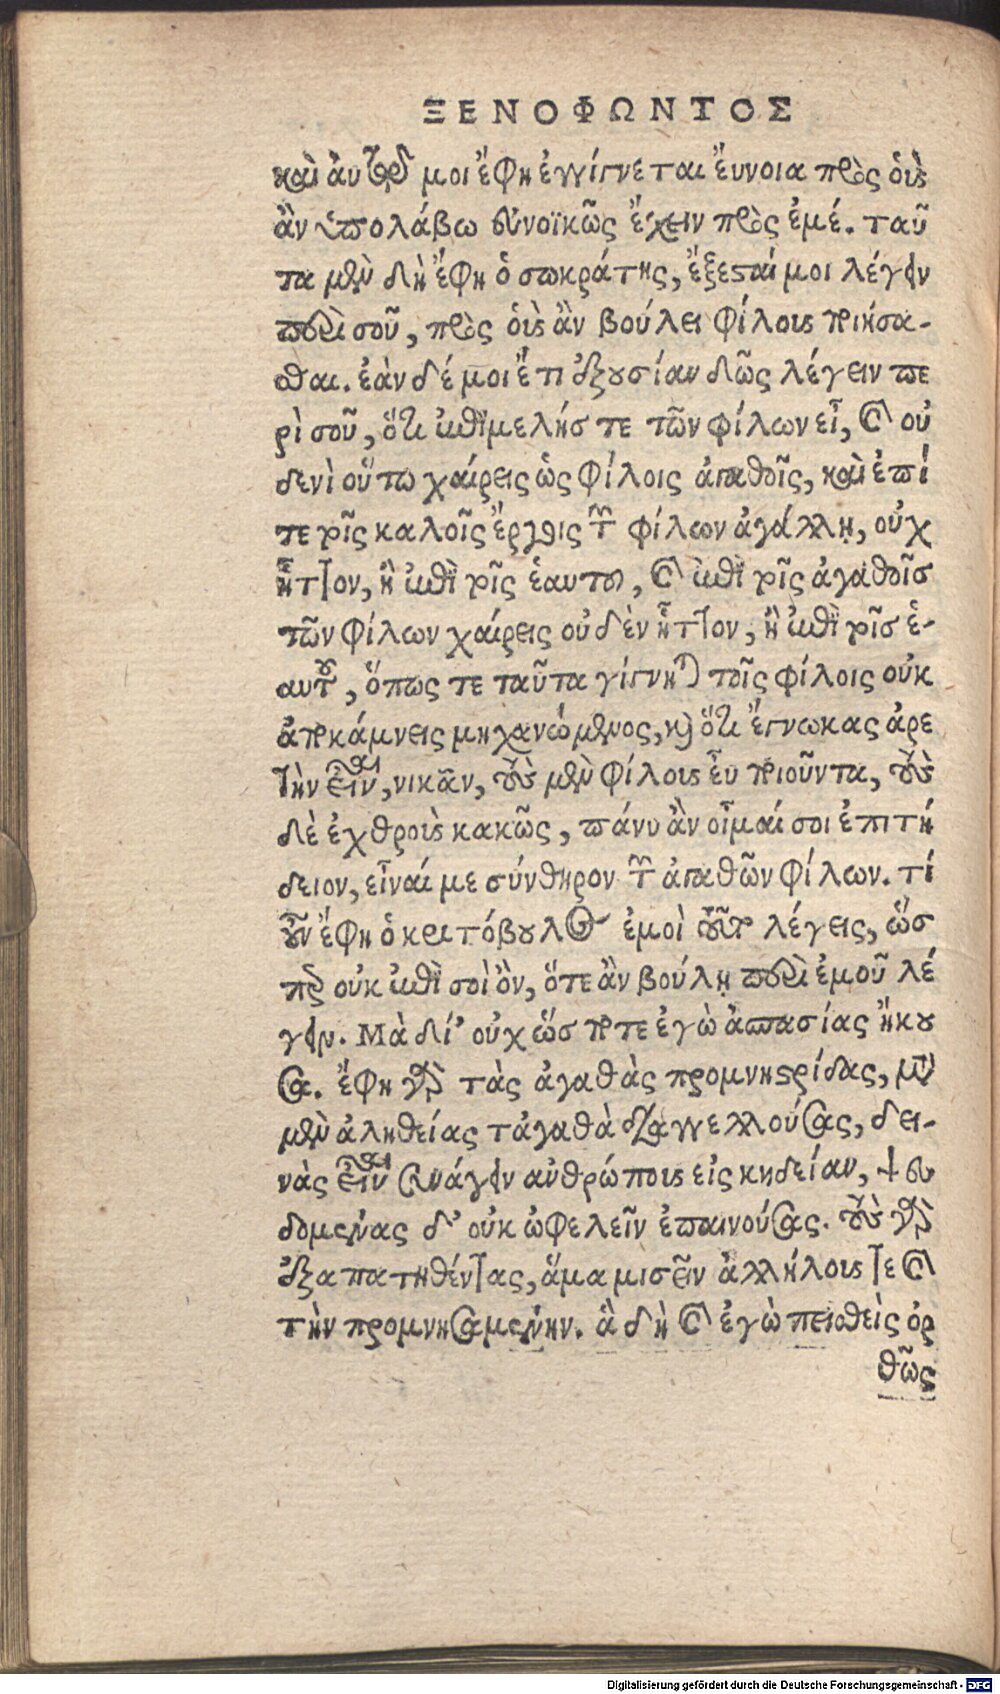 ΞΕΝΟΦΩΝΤΟΣ
καὶ ἀυτῷ μοι ἔφη ἐγγίγνεται ἔυνοια πρὸς οὓς
ἂν ὑπολάβω εὐνοϊκῶς ἔχειν πρὸς ἐμέ. ταῦ
τα μὲν δὴ ἔφη ὁ σωκράτης, ἔξεσταί μοι λέγειν
περὶ σοῦ, πρὸς οὓς ἂν βούλει φίλους ποιήσα-
σθαι. ἐὰν δέ μοι ἔτι ἐξουσίαν δῶς λέγειν πε
ρὶ σοῦ, ὅτι ἐπιμελής τε τῶν φίλων εἶ, καὶ οὐ
δενὶ οὕτω χαίρεις ὡς φίλοις ἀγαθοῖς, καὶ ἐπί
τε τοῖς καλοῖς ἔργοις τῶν φίλων ἀγάλλῃ, οὐχ
ἧττον, ἢ ἐπὶ τοῖς ἑαυτοῦ, καὶ ἐπὶ τοῖς ἀγαθοῖσ
τῶν φίλων χαίρεις οὐδὲν ἧττον, ἢ ἐπὶ τοῖσ ἑ-
αυτοῦ, ὅπως τε ταῦτα γίγνηται τοῖς φίλοις οὐκ
ἀποκάμνεις μηχανώμενος, καὶ ὅτι ἔγνωκας ἀρε
τὴν εἶναι, νικᾶν, τοὺς μὲν φίλους εὖ ποιοῦντα, τοὺς
δὲ ἐχθροὺς κακῶς, πάνυ ἂν οἶμαί σοι ἐπιτή
δειον, εἶναί με σύνθηρον τῶν ἀγαθῶν φίλων. τί
οὖν ἔφη ὁ κριτόβουλος ἐμοὶ τοῦτο λέγεις, ὥσ
περ οὐκ ἐπὶ σοὶ ὂν, ὅτε ἂν βούλῃ περὶ ἐμοῦ λέ
γειν. Μὰ δί' οὐχ ὥσ ποτε ἐγὼ ἀσπασίας ἤκου
σα. ἔφη γὰρ τὰς ἀγαθὰς προμνηστρίδας, μετὰ
μὲν ἀληθείας τἀγαθὰ διαγγελλούσας, δει-
νὰς εἶναι συνάγειν ἀνθρώπους εἰς κηδείαν, ψευ
δομένας δ' οὐκ ὠφελεῖν ἐπαινούσας. τοὺς γὰρ
ἐξαπατηθέντας, ἅμα μισεῖν ἀλλήλους τε καὶ
τὴν προμνησαμένην. ἃ δὴ καὶ ἐγὼ πεισθεὶς ὀρ
θῶς
Digitalisierung gefördert durch die Deutsche Forschungsgemeinschaft - DFG